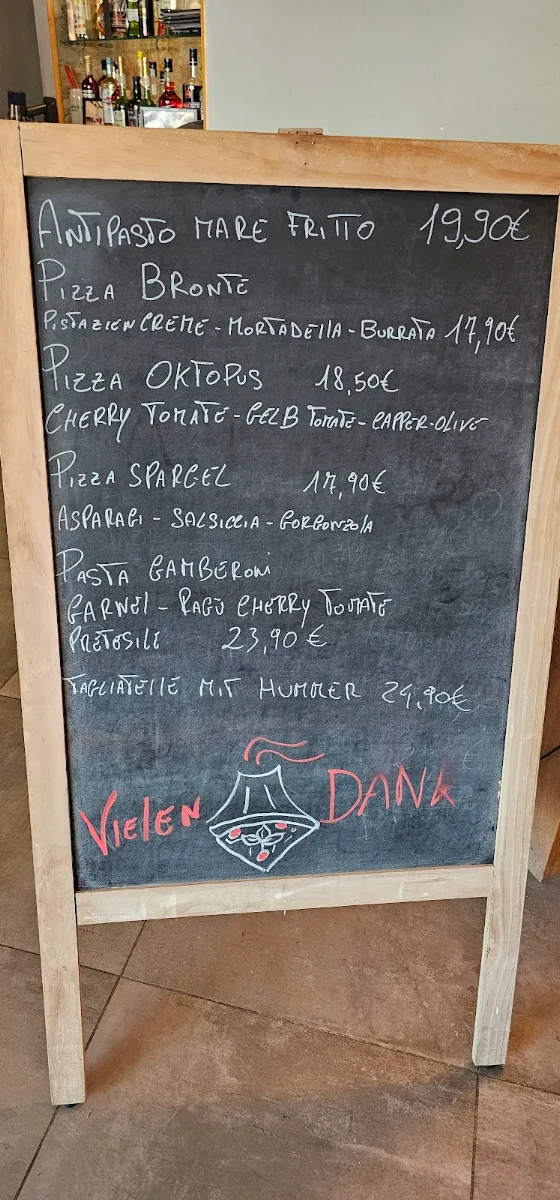 ANTIPASTO MARE FRITTO 19,90€
PIZZA BRONTE
PISTAZIENCREME - MORTADELLA - BURRATA 17,90€
PIZZA OKTOPUS 18,50€
CHERRY TOMATE - GELB TOMATE - CAPPER - OLIVE
PIZZA SPARGEL 17,90€
ASPARAGI - SALSICCIA - GORGONZOLA
PASTA GAMBERONI
GARNEL - RAGÙ CHERRY TOMATE
PRETESILE 23,90 €
TAGLIATELLE MIT HUMMER 24,90€
VIELEN DANK